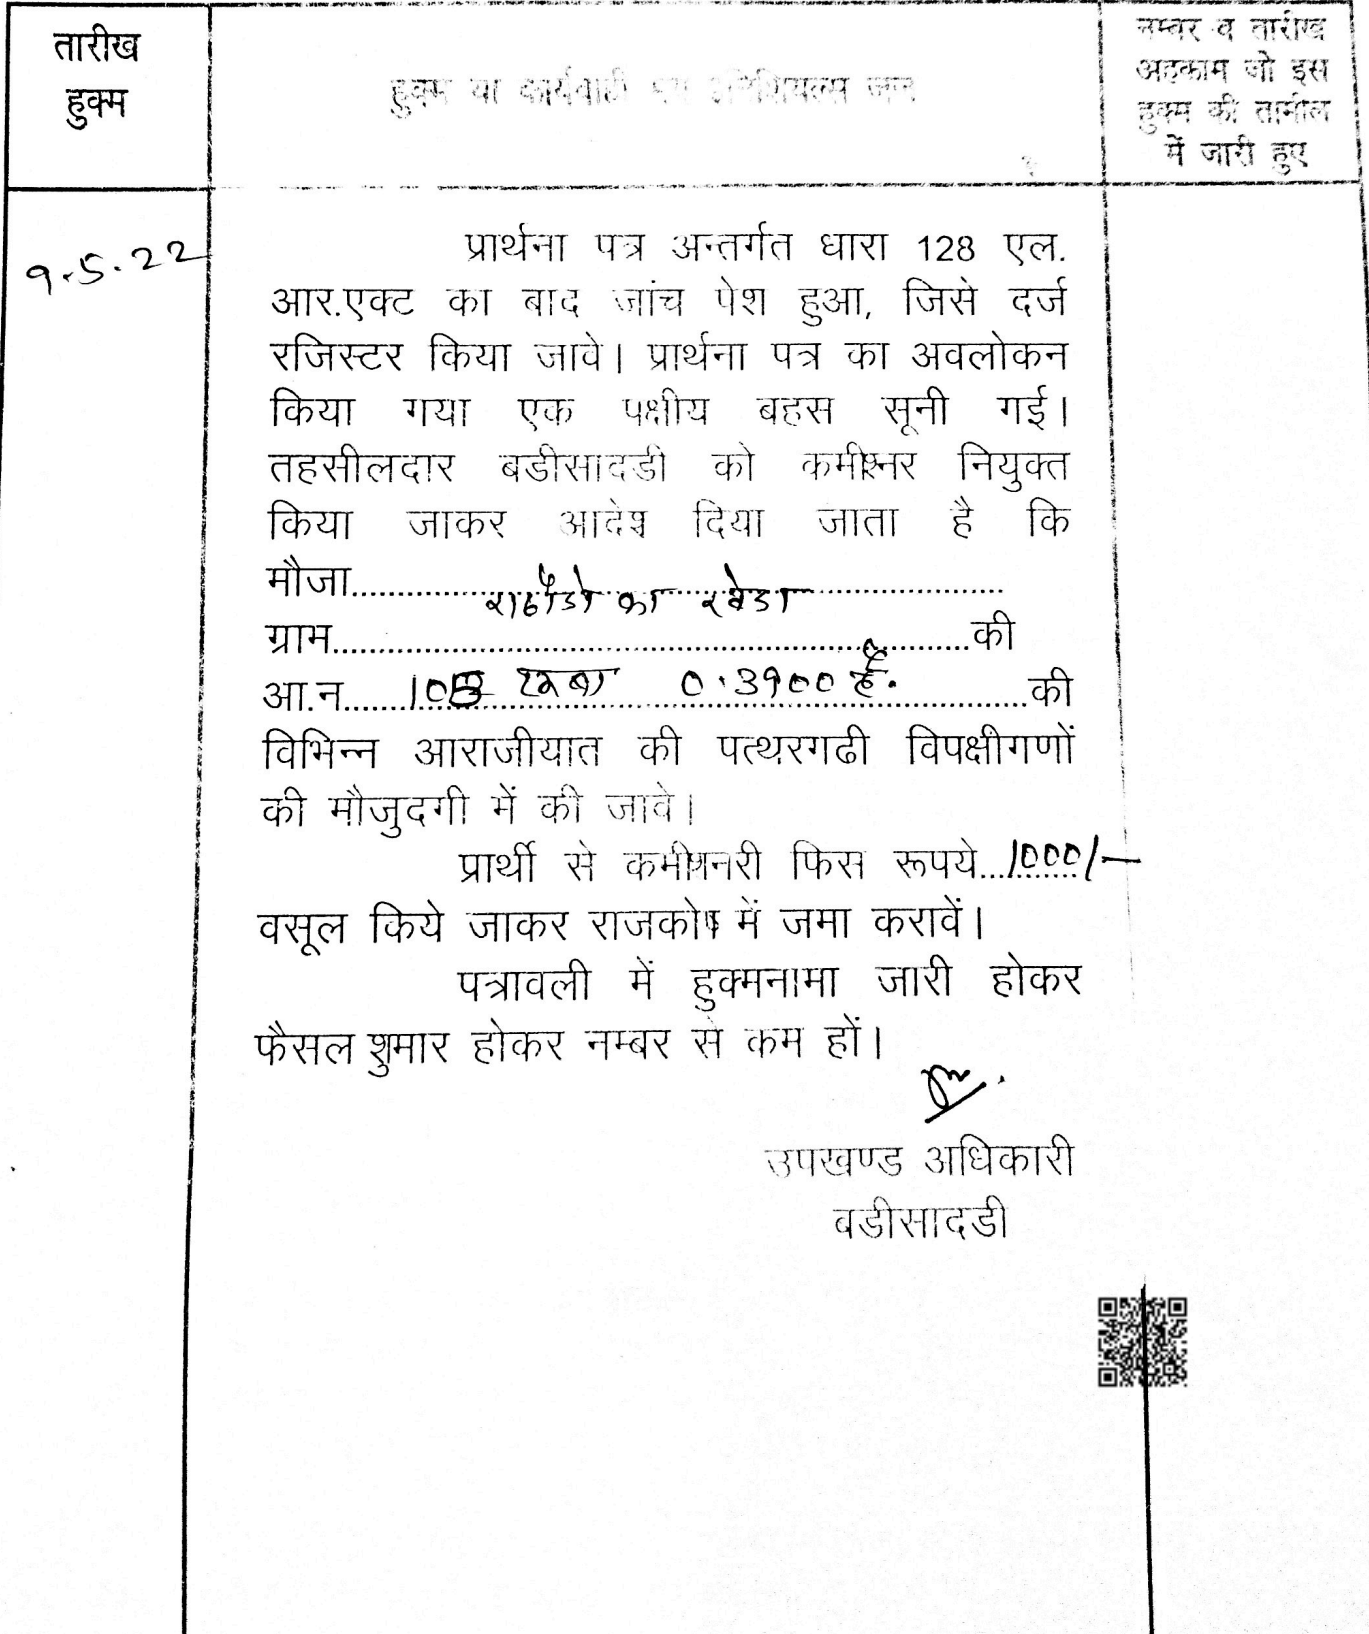 तारीख
हुक्म
हुक्म या कार्यवाही मय इनिशियल्स जज
नम्बर व तारीख
अहकाम जो इस
हुक्म की तामील
में जारी हुए
9.5.22
प्रार्थना पत्र अन्तर्गत धारा 128 एल.
आर.एक्ट का बाद जांच पेश हुआ, जिसे दर्ज
रजिस्टर किया जावे। प्रार्थना पत्र का अवलोकन
किया गया एक पक्षीय बहस सूनी गई।
तहसीलदार बडीसादडी को कमीश्नर नियुक्त
किया जाकर आदेश दिया जाता है कि
मौजा.......राठौडो का खेडा.......
ग्राम..............की
आ.न.......रकबा 0.3900 है........की
विभिन्न आराजीयात की पत्थरगढी विपक्षीगणों
की मौजुदगी में की जावे।
प्रार्थी से कमीशनरी फिस रूपये...1000/-
वसूल किये जाकर राजकोष में जमा करावें।
पत्रावली में हुक्मनामा जारी होकर
फैसल शुमार होकर नम्बर से कम हों।
उपखण्ड अधिकारी
बडीसादडी